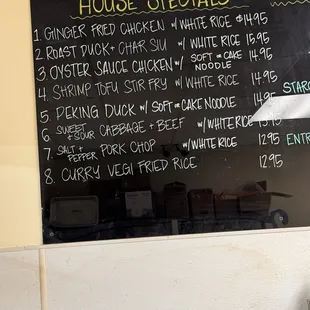 HOUSE SPECIALS
1 GINGER FRIED CHICKEN W/ WHITE RICE $14.95
2 ROAST DUCK + CHAR SIU W/ WHITE RICE 15.95
3 OYSTER SAUCE CHICKEN W/ SOFT or CAKE NOODLE 14.95
4. SHRIMP TOFU STIR FRY W/ WHITE RICE 14.95
5. PEKING DUCK W/ SOFT or CAKE NOODLE
6 SWEET + SOUR CABBAGE + BEEF W/ WHITE RICE
7. SALT + PEPPER PORK CHOP W/ WHITE RICE 12.95
8. CURRY VEGI FRIED RICE 12.95